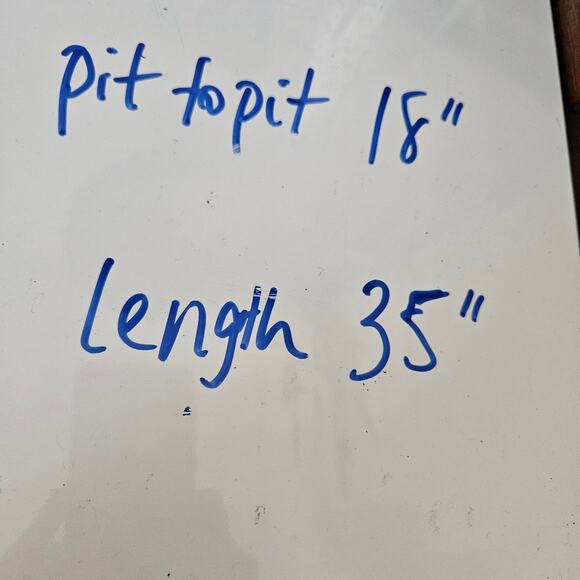 pit to pit 18"
Length 35"